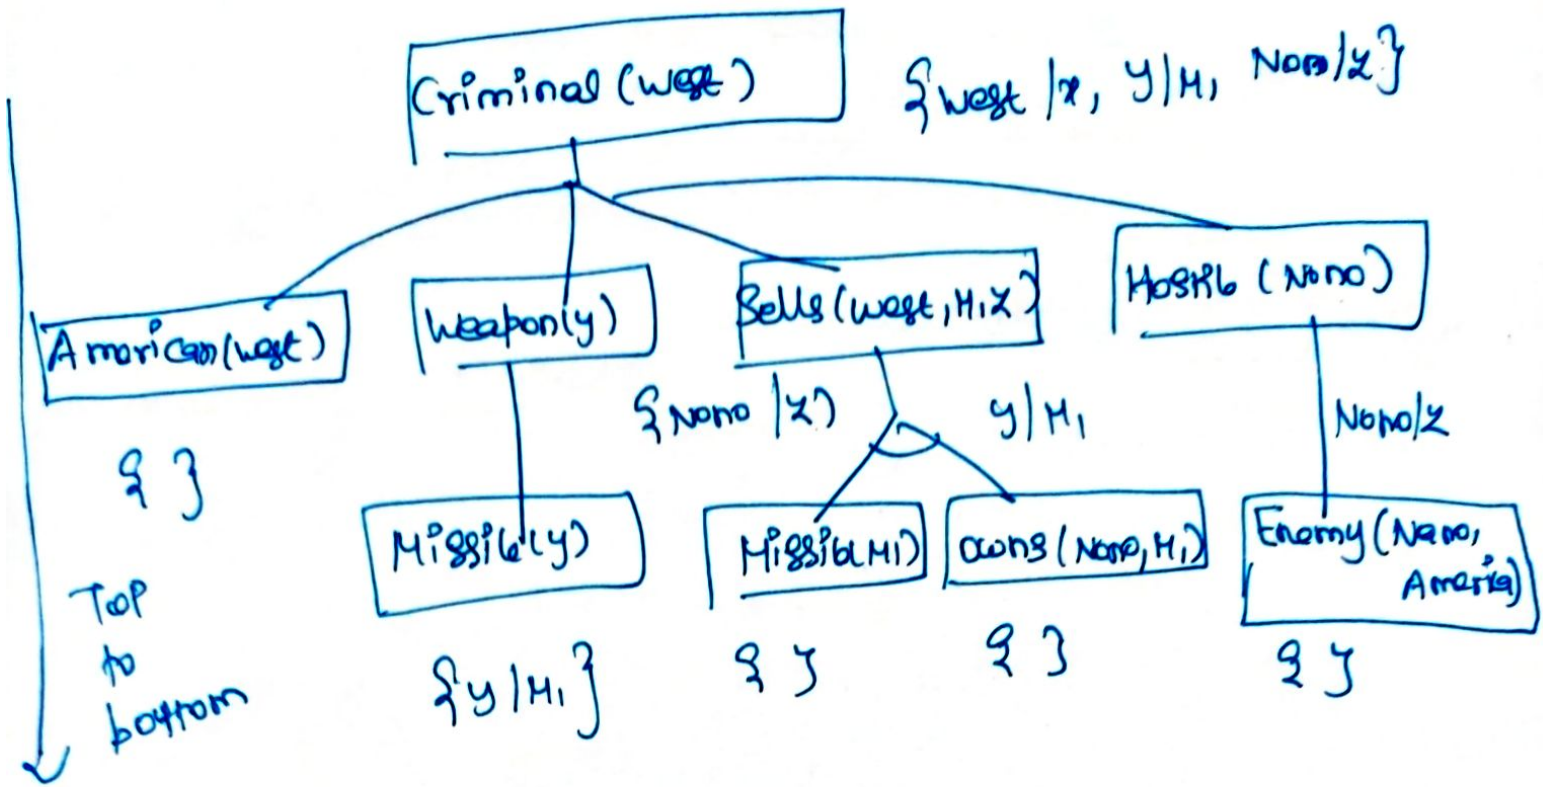 Criminal (West) {West /x, y/M1, Nono/Z}
American(West)
Weapon(y)
Sells (West, M1, Z)
Hostile (Nono)
{ }
{Nono /Z}
y/M1
Nono/Z
Missile(y)
Missile(M1)
Owns (Nono, M1)
Enemy (Nono,
America)
{y/M1}
{ }
{ }
{ }
Top
to
bottom